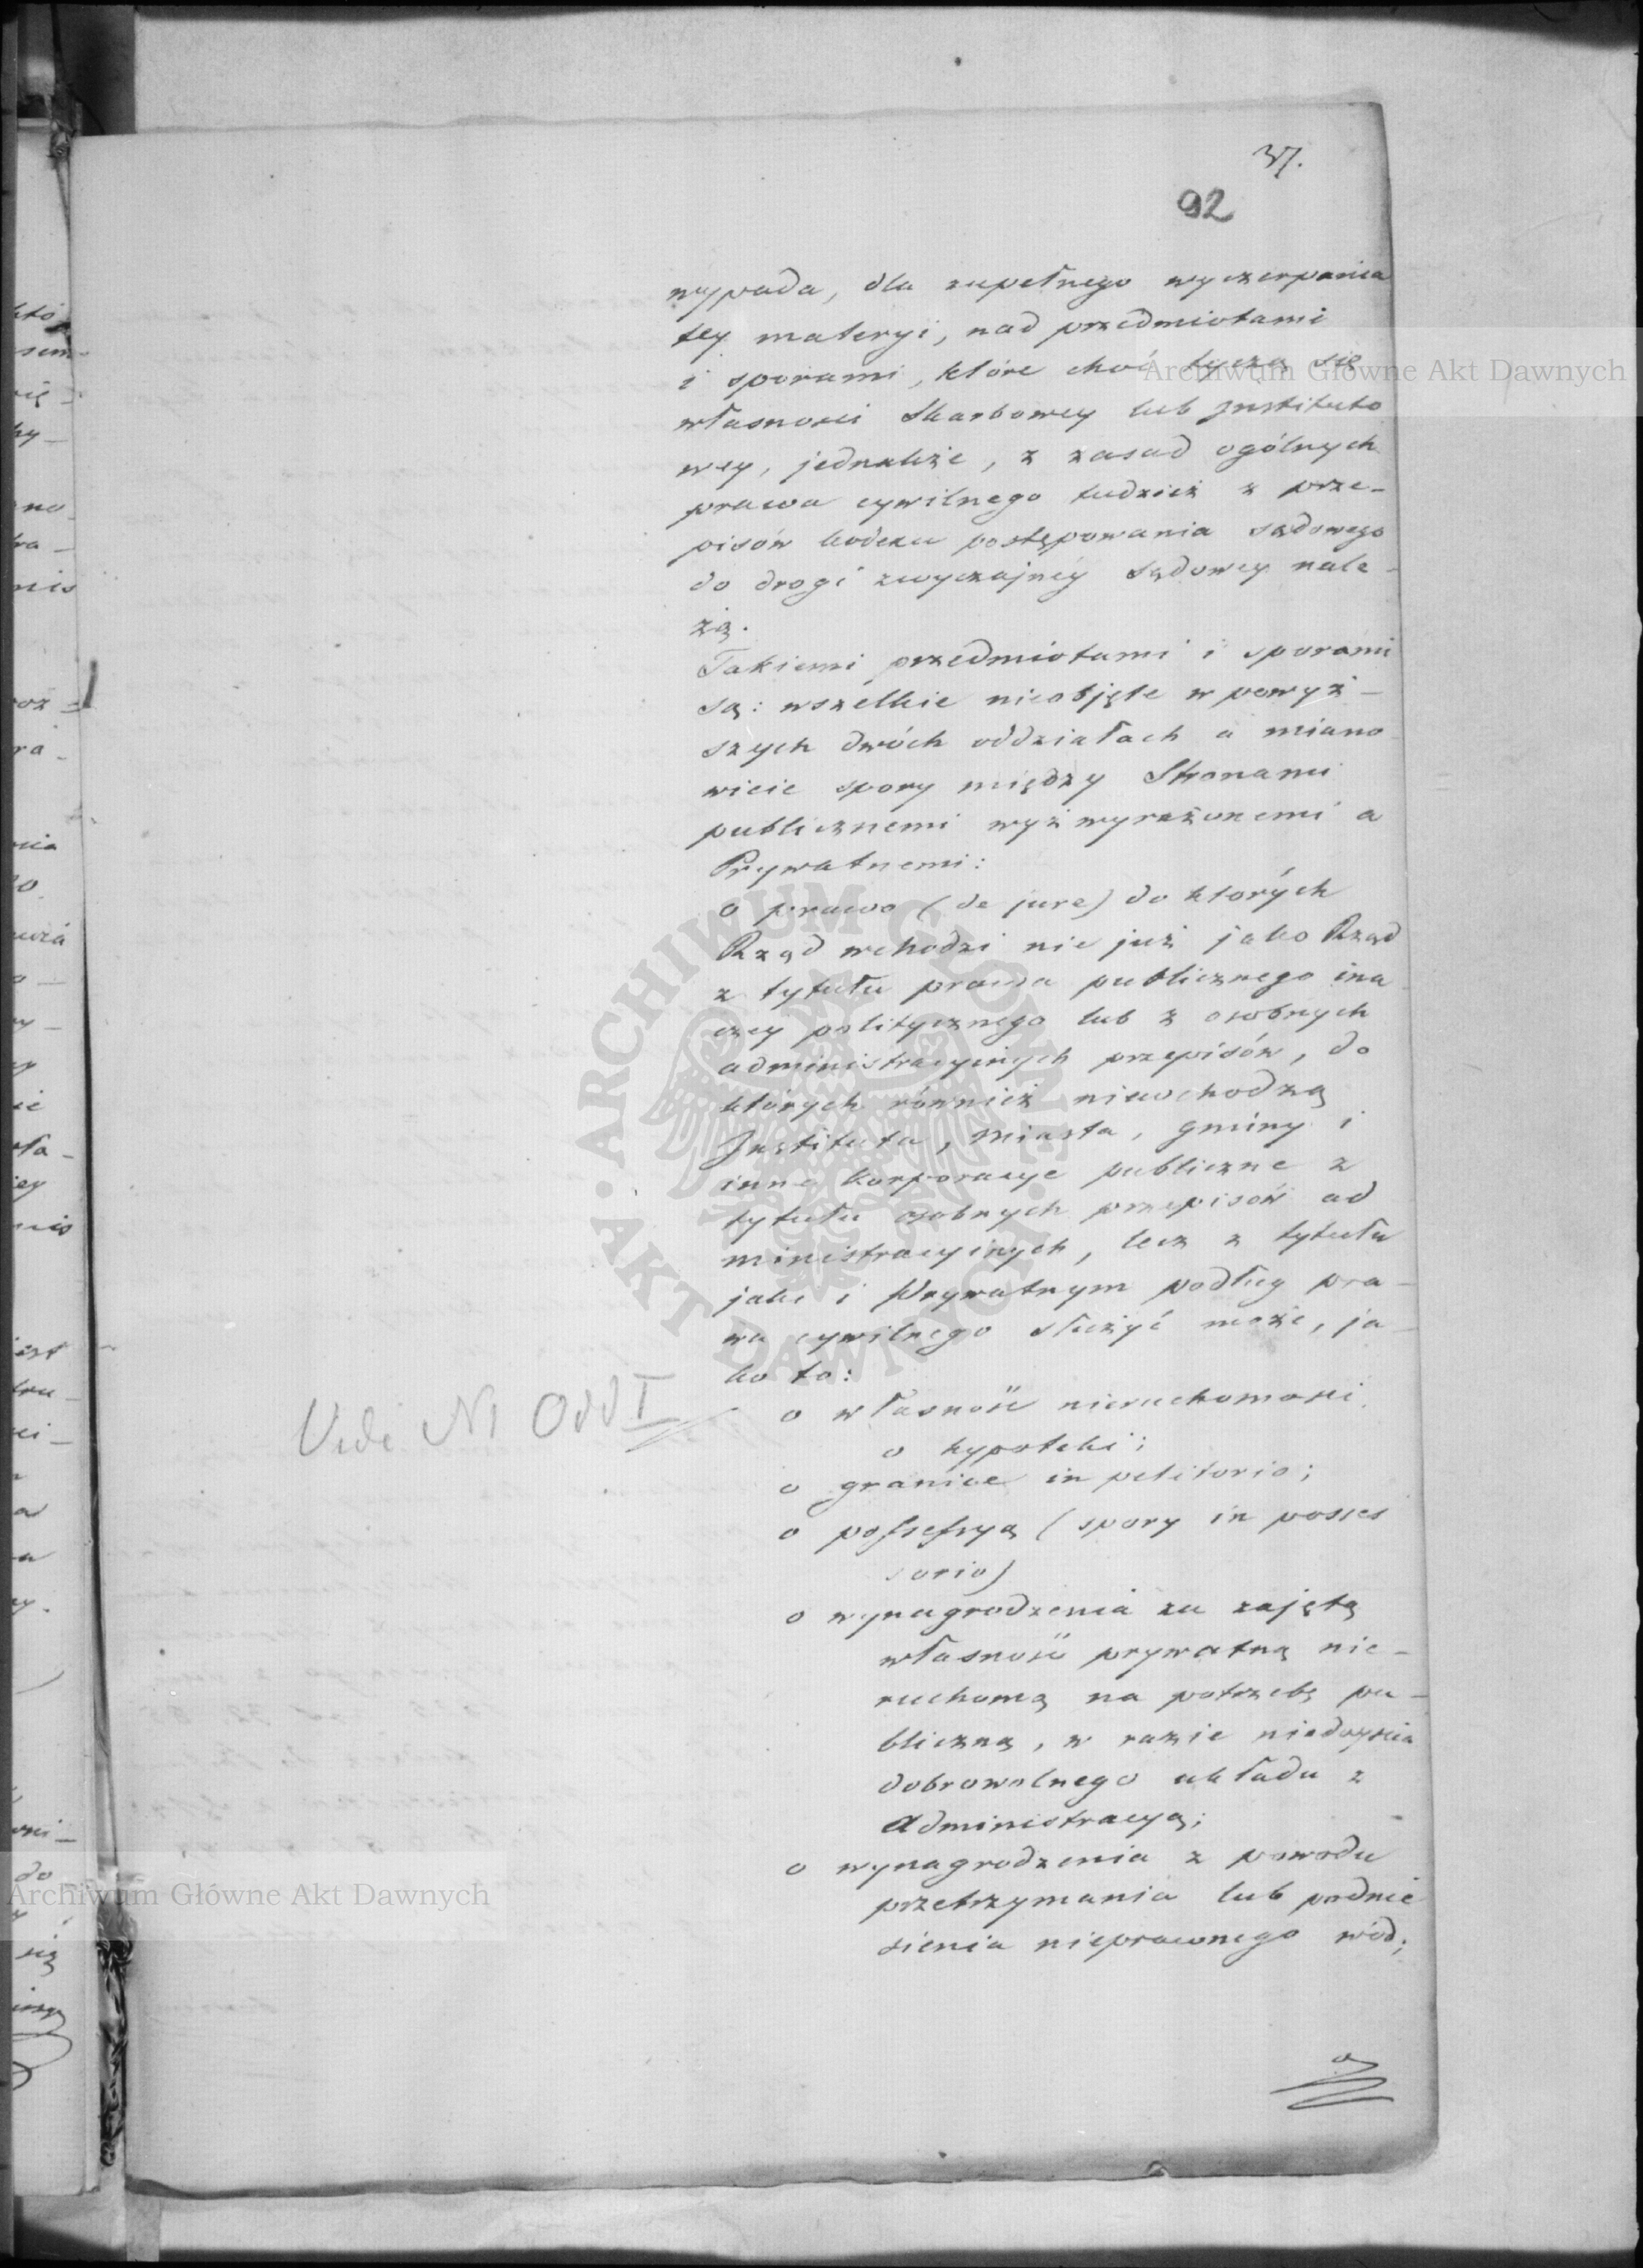 37.
92
wypada, dla zupełnego wyczerpania
tey materyi, nad przedmiotami
i sporami, które choć tyczą się
własności Skarbowey lub Instituto
wey, jednakże, z zasad ogólnych
prawa cywilnego tudzież z prze-
pisów kodexu postępowania sądowego
do drogi zwyczajney sądowey nale-
żą.
Takiemi przedmiotami i sporami
są: wszelkie nieobjęte w powyż-
szych dwóch oddziałach a miano
wicie spory między Stronami
publicznemi wyż wyrażonemi a
Prywatnemi:
o prawo (de jure) do których
Rząd wchodzi nie już jako Rząd
z tytułu prawa publicznego ina
czey politycznego lub z osobnych
administracyinych przepisów, do
których również niewchodzą
Instituta, Miasta, gminy i
inne korporacye publiczne z
tytułu osobnych przepisów ad
ministracyinych, lecz z tytułu
jaki i Prywatnym podług pra-
wa cywilnego służyć może, ja-
ko to:
o własność nieruchomości
o hypoteki;
o granice in petitorio;
o possessyą (spory in posses
sorio)
o wynagrodzenia za zajętą
własność prywatną nie-
ruchomą na potrzebę pu-
bliczną, w razie niedoyścia
dobrowolnego układu z
Administracyą;
o wynagrodzenia z powodu
przetrzymania lub podnie
sienia nieprawnego wód;
Vide N1 Odd I
Archiwum Główne Akt Dawnych
Archiwum Główne Akt Dawnych
ARCHIWUM GŁÓWNE AKT DAWNYCH